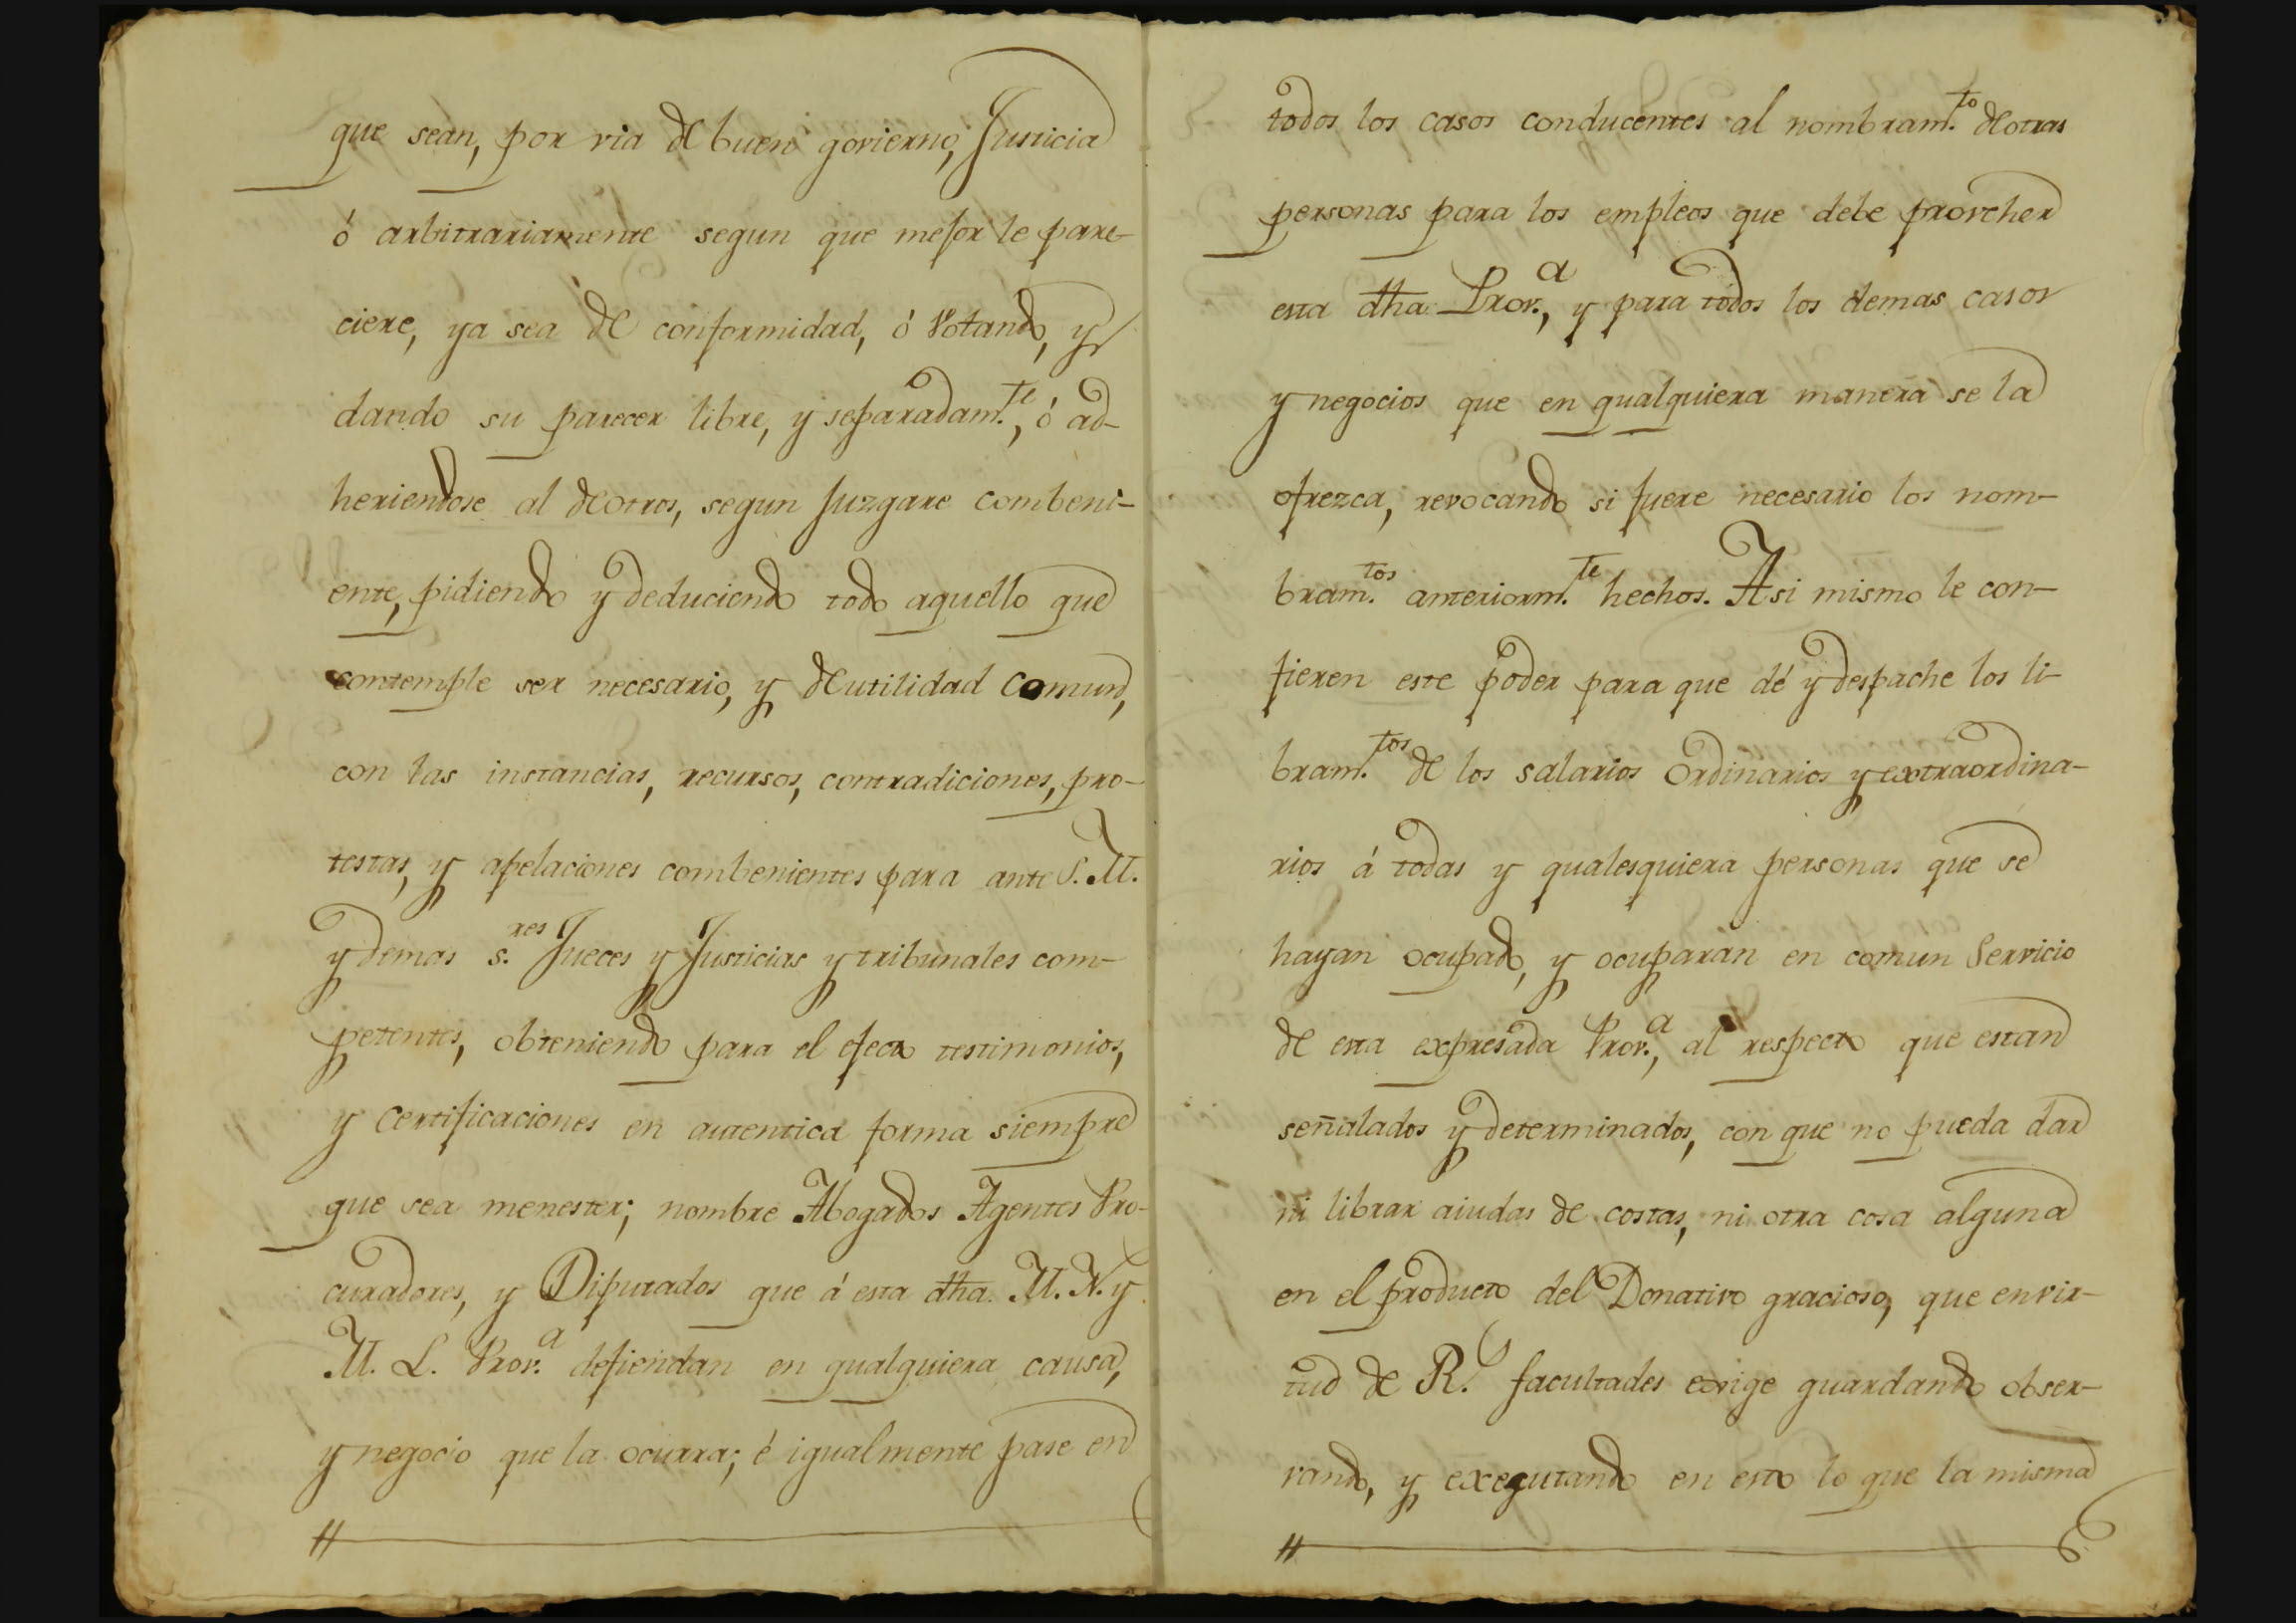 que sean, por via de buen govierno, Justicia
ó arbitrariamente segun que mejor le pare-
ciere, ya sea de conformidad, ó Votando, y
dando su parecer libre, y separadam.te, ó ad-
heriendose al de otros, segun Juzgare combeni-
ente, pidiendo y deduciendo todo aquello que
contemple ser necesario, y de utilidad comun,
con las instancias, recursos, contradiciones, pro-
testas, y apelaciones combenientes para ante S. M.
y demas s.res Jueces y Justicias y tribunales com-
petentes, obteniendo para el efecto testimonios,
y Certificaciones en autentica forma siempre
que sea menester; nombre Abogados Agentes Pro-
curadores, y Diputados que á esta dha. M. N. y
M. L. Prov.a defiendan en qualquiera causa,
y negocio que la ocurra; é igualmente pase en
todos los casos conducentes al nombram.to de otras
personas para los empleos que debe proveher
esta dha Prov.a, y para todos los demas casos
y negocios que en qualquiera manera se la
ofrezca, revocando si fuere necesario los nom-
bram.tos anteriorm.te hechos. Asi mismo le con-
fieren este poder para que dé y despache los li-
bram.tos de los salarios Ordinarios y extraordina-
rios á todas y qualesquiera personas que se
hayan ocupado, y ocuparàn en comun Servicio
de esta expresada Prov.a, al respecto que estan
señalados y determinados, con que no pueda dar
ni librar aiudas de costas, ni otra cosa alguna
en el producto del Donativo gracioso, que en vir-
tud de R.s facultades exige guardando obser-
vando, y executando en esto lo que la misma